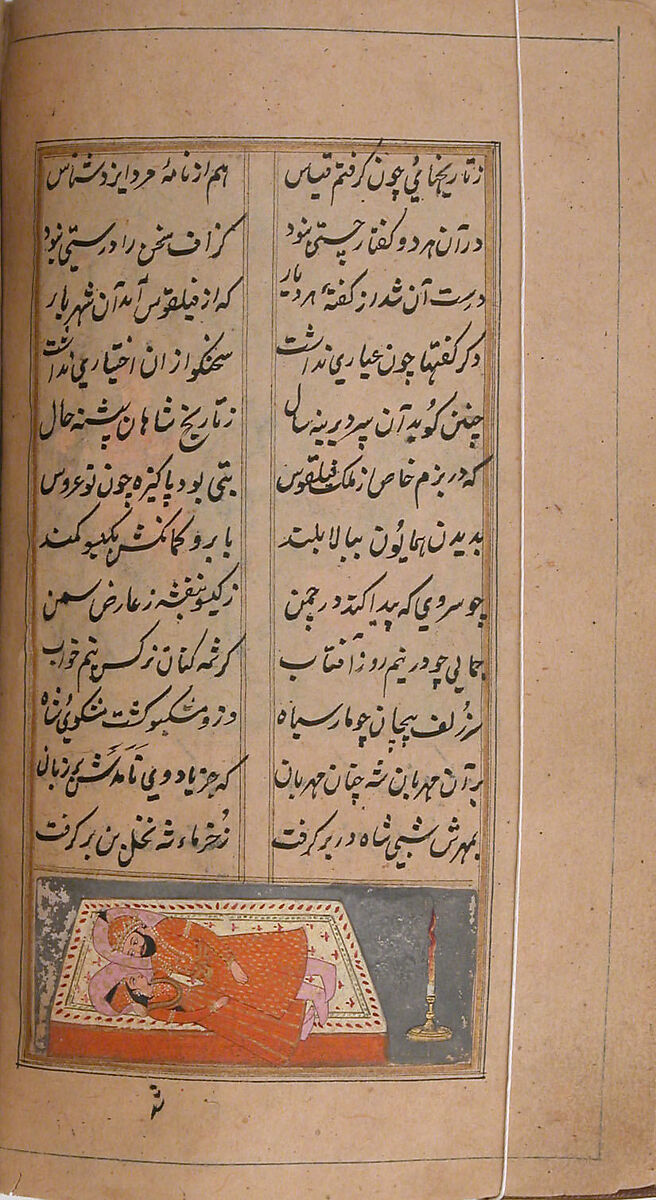 ز تاریخهائی چون کرفتم قیاس هم از نامهٔ مرد ایزد شناس
در آن هر دو کفتار چستی نبود کزاف سخن را درستی نبود
درست آن شد از کفتهٔ هر دیار که از فیلقوس آمد آن شهریار
دکر کفتها چون عیاری نداشت سخنکو از ان اختیاری نداشت
چنین کوید آن پیر دیرینه سال ز تاریخ شاهان پیشینه حال
که در بزم خاص از ملک فیلقوس بتی بود پاکیزه چون نو عروس
بدیدن همایون ببالا بلند بابرو کمانکش بکیسو کمند
چو سروی که پیدا کند در چمن ز کیسو بنفشه ز عارض سمن
جمالی چو در نیم روز آفتاب کرشمه کنان نرکس نیم خواب
سر زلف پیچان چو مار سیاه وزو مشکبو کشت مشکوی شاه
بر آن مهربان شه چنان مهربان که جز یاد وی نامدش بر زبان
بمهرش شبی شاه در بر کرفت ز خرماء شه نخل بن بر کرفت